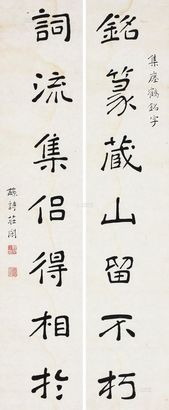 集瘞鶴銘字
銘篆藏山留不朽
詞流集侶得相於